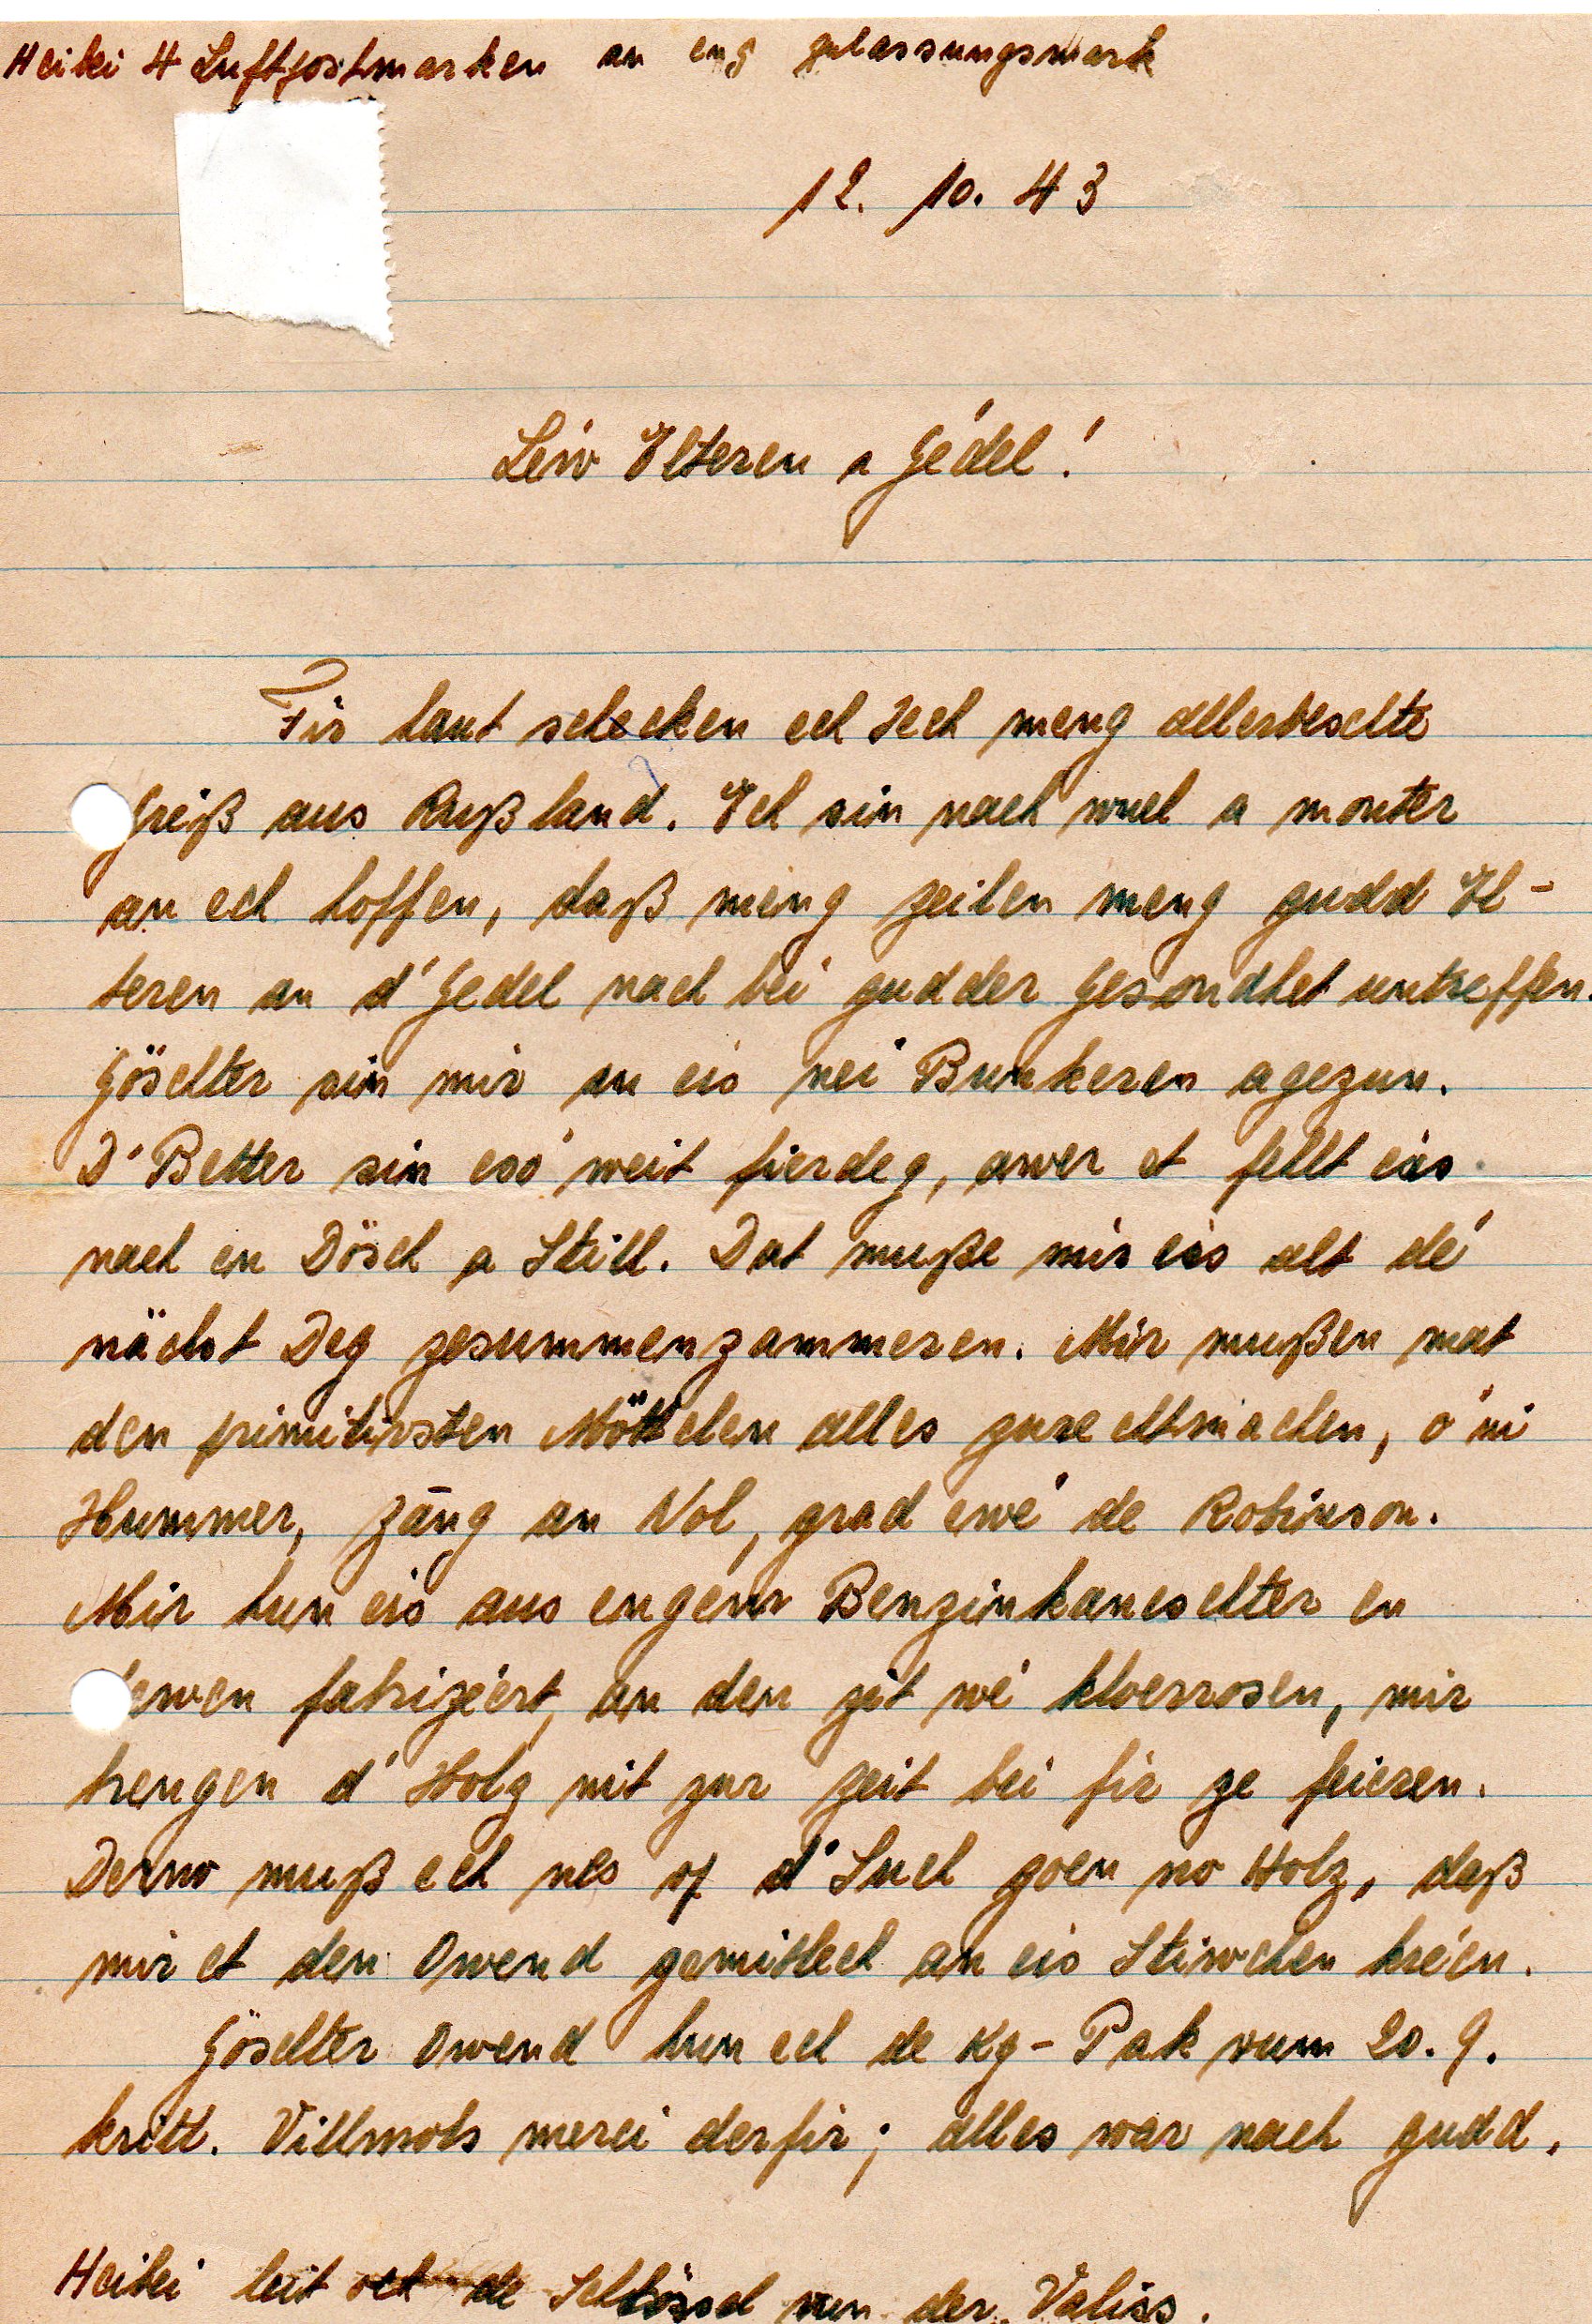 Heibei 4 Luftpostmarken an eng zulassungsmark
12. 10. 43
Léiw Elteren a Gédel!
Fir haut schecken ech Iech meng allerbeschte
Gréiß aus Rußland. Ech sin nach wuel a monter
an ech hoffen, daß meng Zeilen meng gudd El-
teren an d'Gedel nach bei gudder Gesondhet untreffen.
Göschter sin mir an eis nei Bunkeren agezun.
D'Better sin esó weit fierdeg, awer et fehlt eis
nach en Dösch a Still. Dat muße mir eis alt dé
nächst Deg zesummenzammeren. Mir mußen mat
den primitivsten Möttelen alles zurechtmachen, ó ni
Hummer, Zäng an Nol, grad ewé de Robinson.
Mir hun eis aus engem Benzinkaneschter en
Hewen fabrizéert, an den git wé kloerrosen, mir
brengen d'Holz nit zur Zeit bei fir ze feieren.
Derno muß ech nes op d'Such goen no Holz, daß
mir et den Owend gemittlech an eis Stiwchen kréen.
Göschter Owend hun ech de Kg-Pak vum 20. 9.
kritt. Villmols merci derfir; alles war nach gudd.
Heibei leit och de Schlössel vun der Valiss.